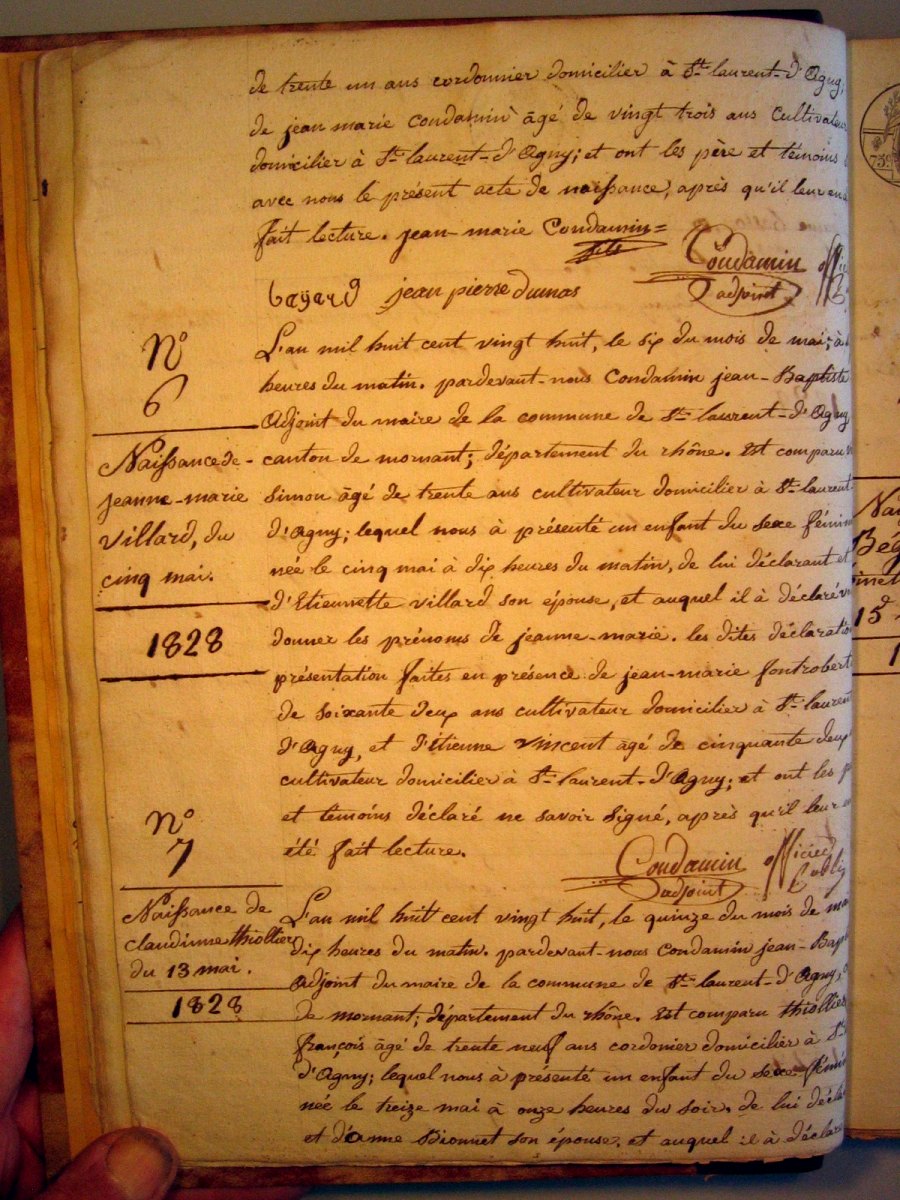 de trente un ans cordonnier domicilier à St. laurent-d'Agny,
de jean marie condamin âgé de vingt trois ans Cultivateur
domicilier à St. laurent-d'Agny; et ont les père et témoins
avec nous le présent acte de naissance, après qu'il leur en a
fait lecture. jean-marie Condamin=
fils
Condamin
bayard jean pierre dumas
adjoint
N°
6
L'an mil huit cent vingt huit, le six du mois de mai; à
heures du matin. pardevant-nous Condamin jean-Baptiste
Adjoint du maire de la commune de St. laurent-d'Agny
Naissance de-
jeanne-marie
villard, du
cinq mai.
1828
canton de mornant; département du rhône. Est comparu
Simon âgé de trente ans cultivateur domicilier à St. laurent
d'Agny; lequel nous à présenté un enfant du sexe fémin
née le cinq mai à dix heures du matin, de lui déclarant et
d'Etiennette villard son épouse, et auquel il à déclaré v
donner les prénoms de jeanne-marie. les dites déclaration
présentation faites en présence de jean-marie fontrobert
de soixante deux ans cultivateur domicilier à St. laurent
d'Agny, et d'étienne vincent âgé de cinquante deux
cultivateur domicilier à St. laurent-d'Agny; et ont les p
et témoins déclaré ne savoir signé, après qu'il leur
été fait lecture.
Condamin officier
adjoint public
N°
7
Naissance de
claudinne thiollier
du 13 mai.
1828
L'an mil huit cent vingt huit, le quinze du mois de ma
dix heures du matin. pardevant-nous Condamin jean-Bap
Adjoint du maire de la commune de St. laurent-d'Agny,
de mornant; département du rhône. Est comparu thiollier
françois âgé de trente neuf ans cordonier domicilier à St.
d'Agny; lequel nous à présenté un enfant du sexe fémin
née le treize mai à onze heures du soir, de lui décla
et d'anne Bionnet son épouse, et auquel il à déclaré
75c
Na
Bég
15d
1